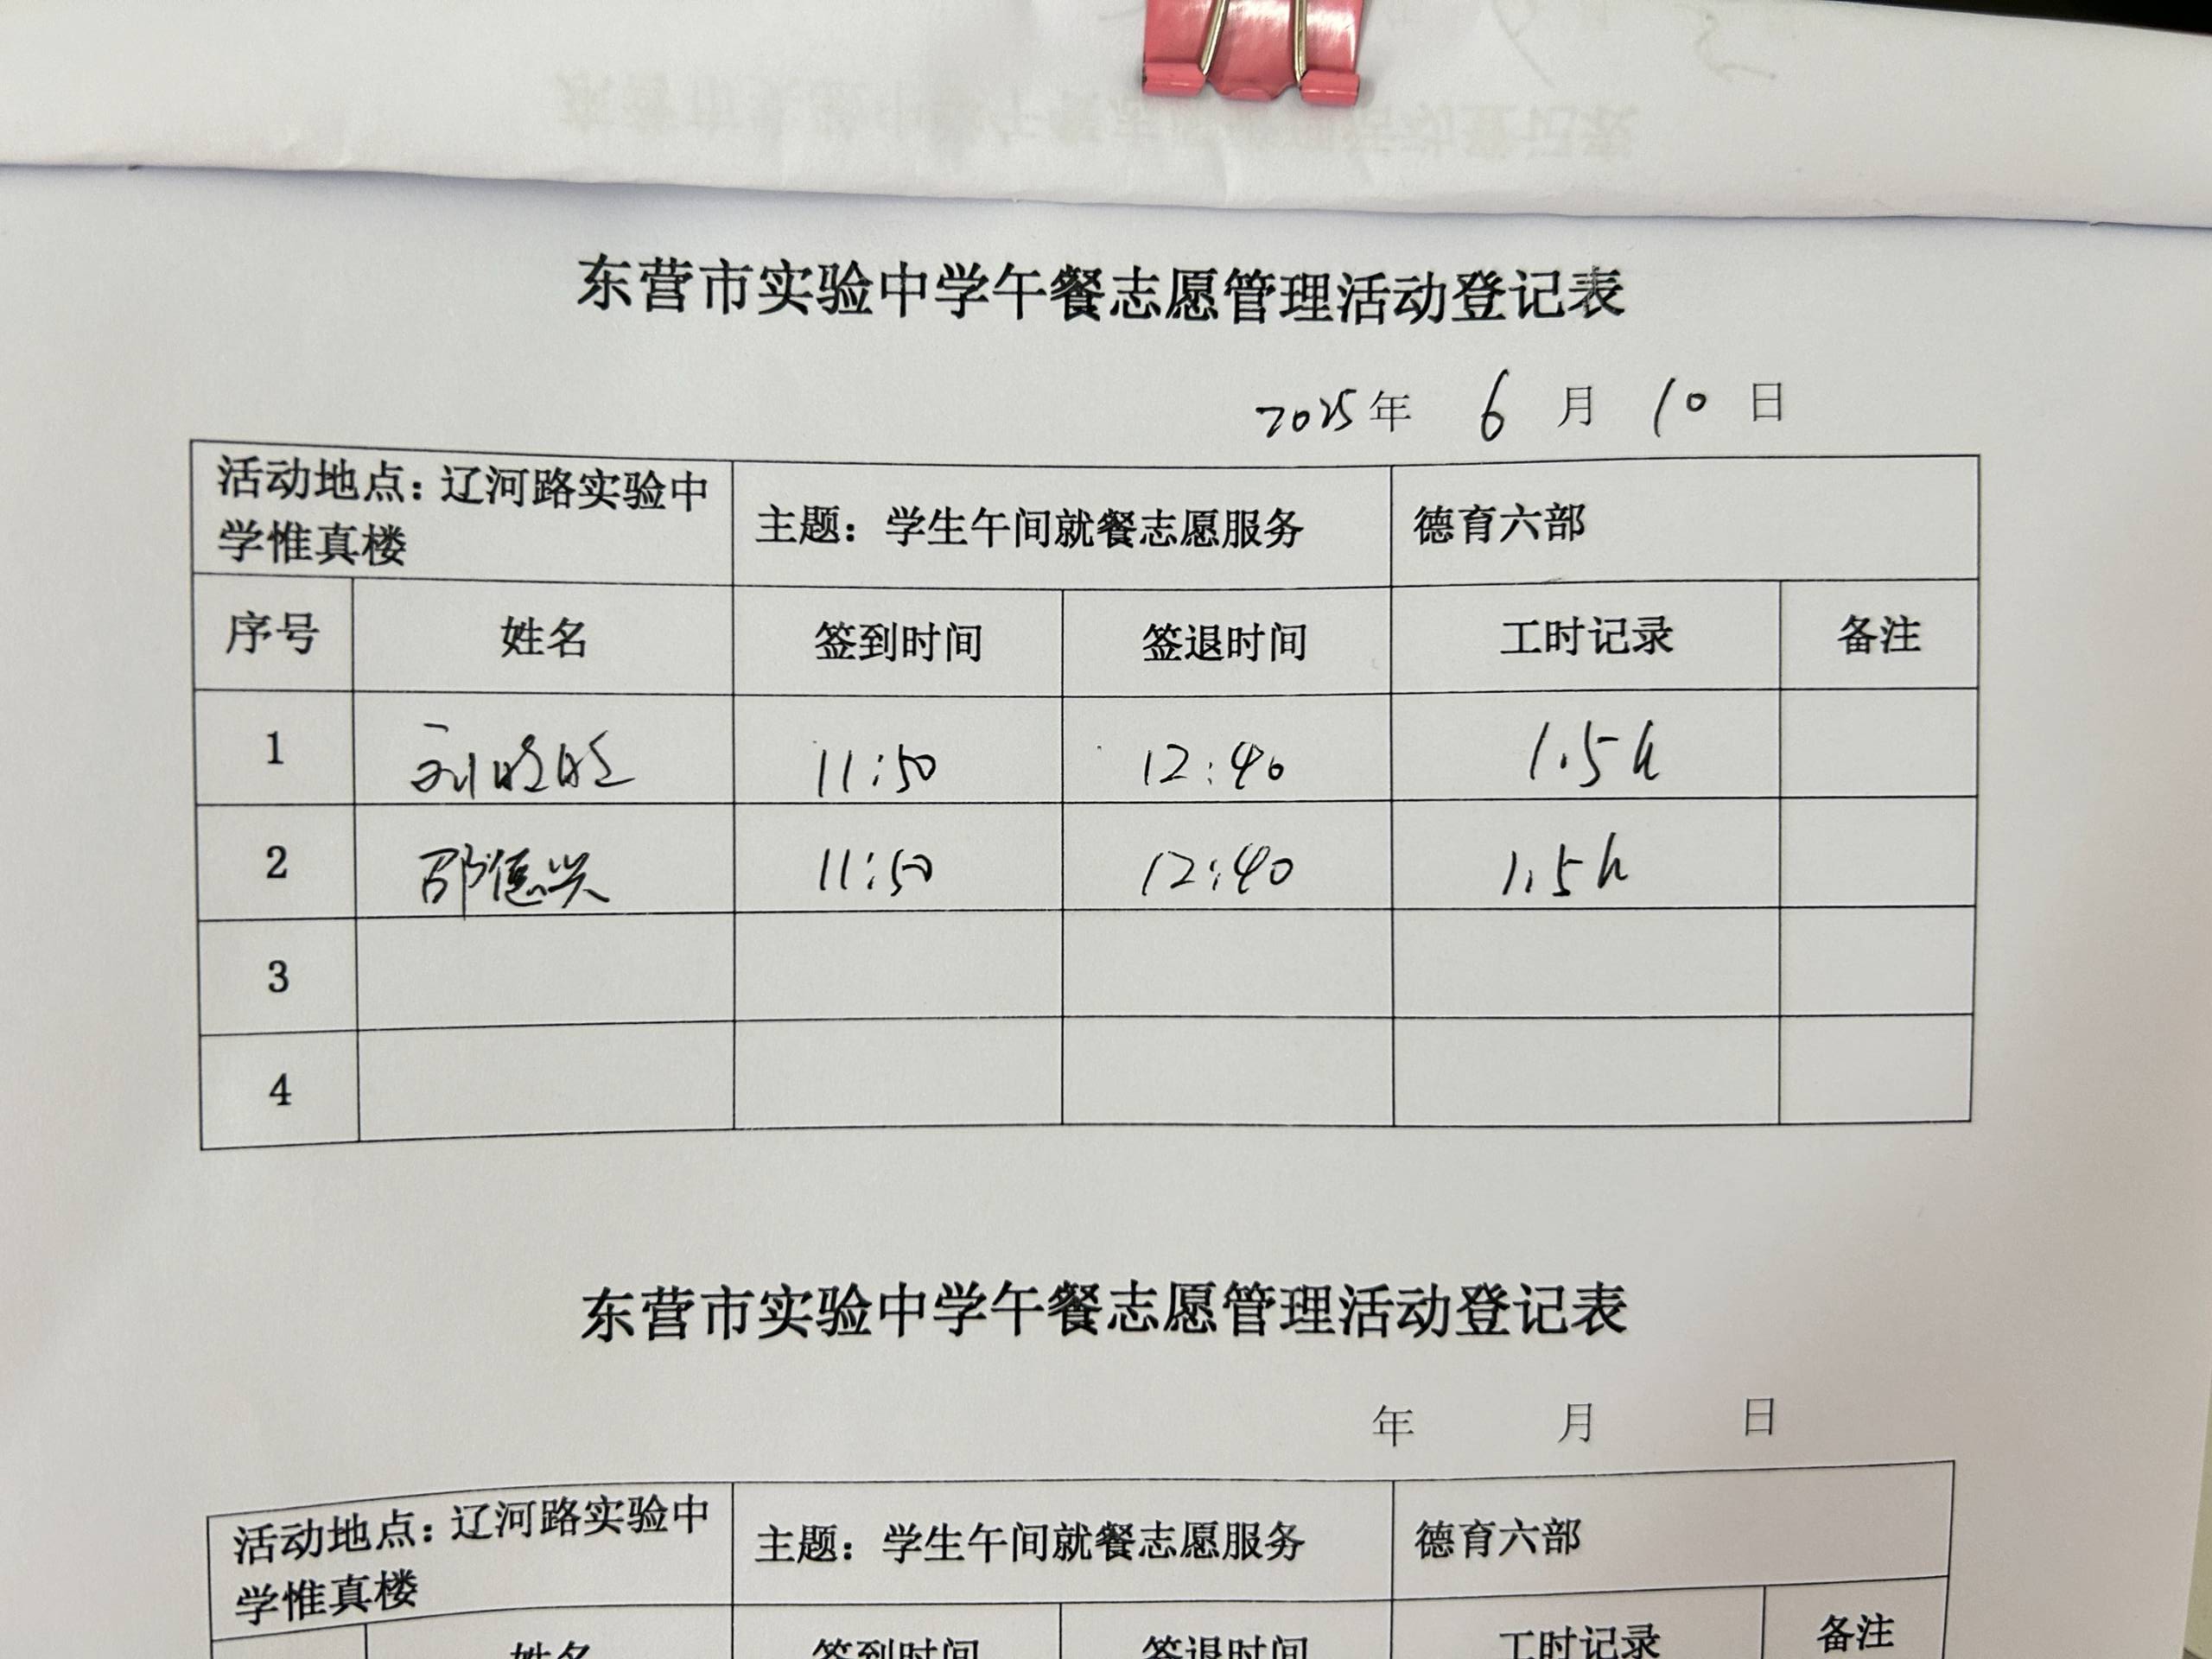 东营市实验中学午餐志愿管理活动登记表
2025年 6 月 10 日
活动地点：辽河路实验中
学惟真楼
主题：学生午间就餐志愿服务
德育六部
序号 姓名 签到时间 签退时间 工时记录 备注
1 11:50 12:40 1.5h
2 邵德兴 11:50 12:40 1.5h
3
4
东营市实验中学午餐志愿管理活动登记表
年 月 日
活动地点：辽河路实验中
学惟真楼
主题：学生午间就餐志愿服务
德育六部
姓名 签到时间 签退时间 工时记录 备注